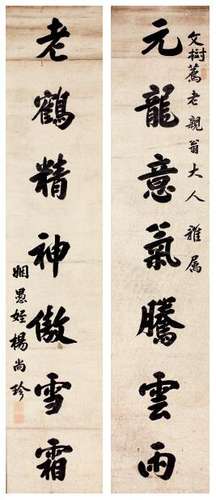 文樹蔦老親翁大人雅屬
元龍意氣騰雲雨
老鶴精神傲雪霜
姻愚姪楊尚珍